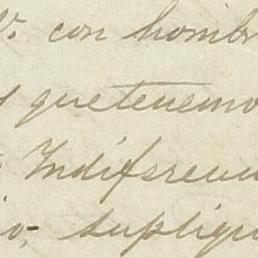 V. con hombr
y que tenemo
Indiferen
io, supliqu